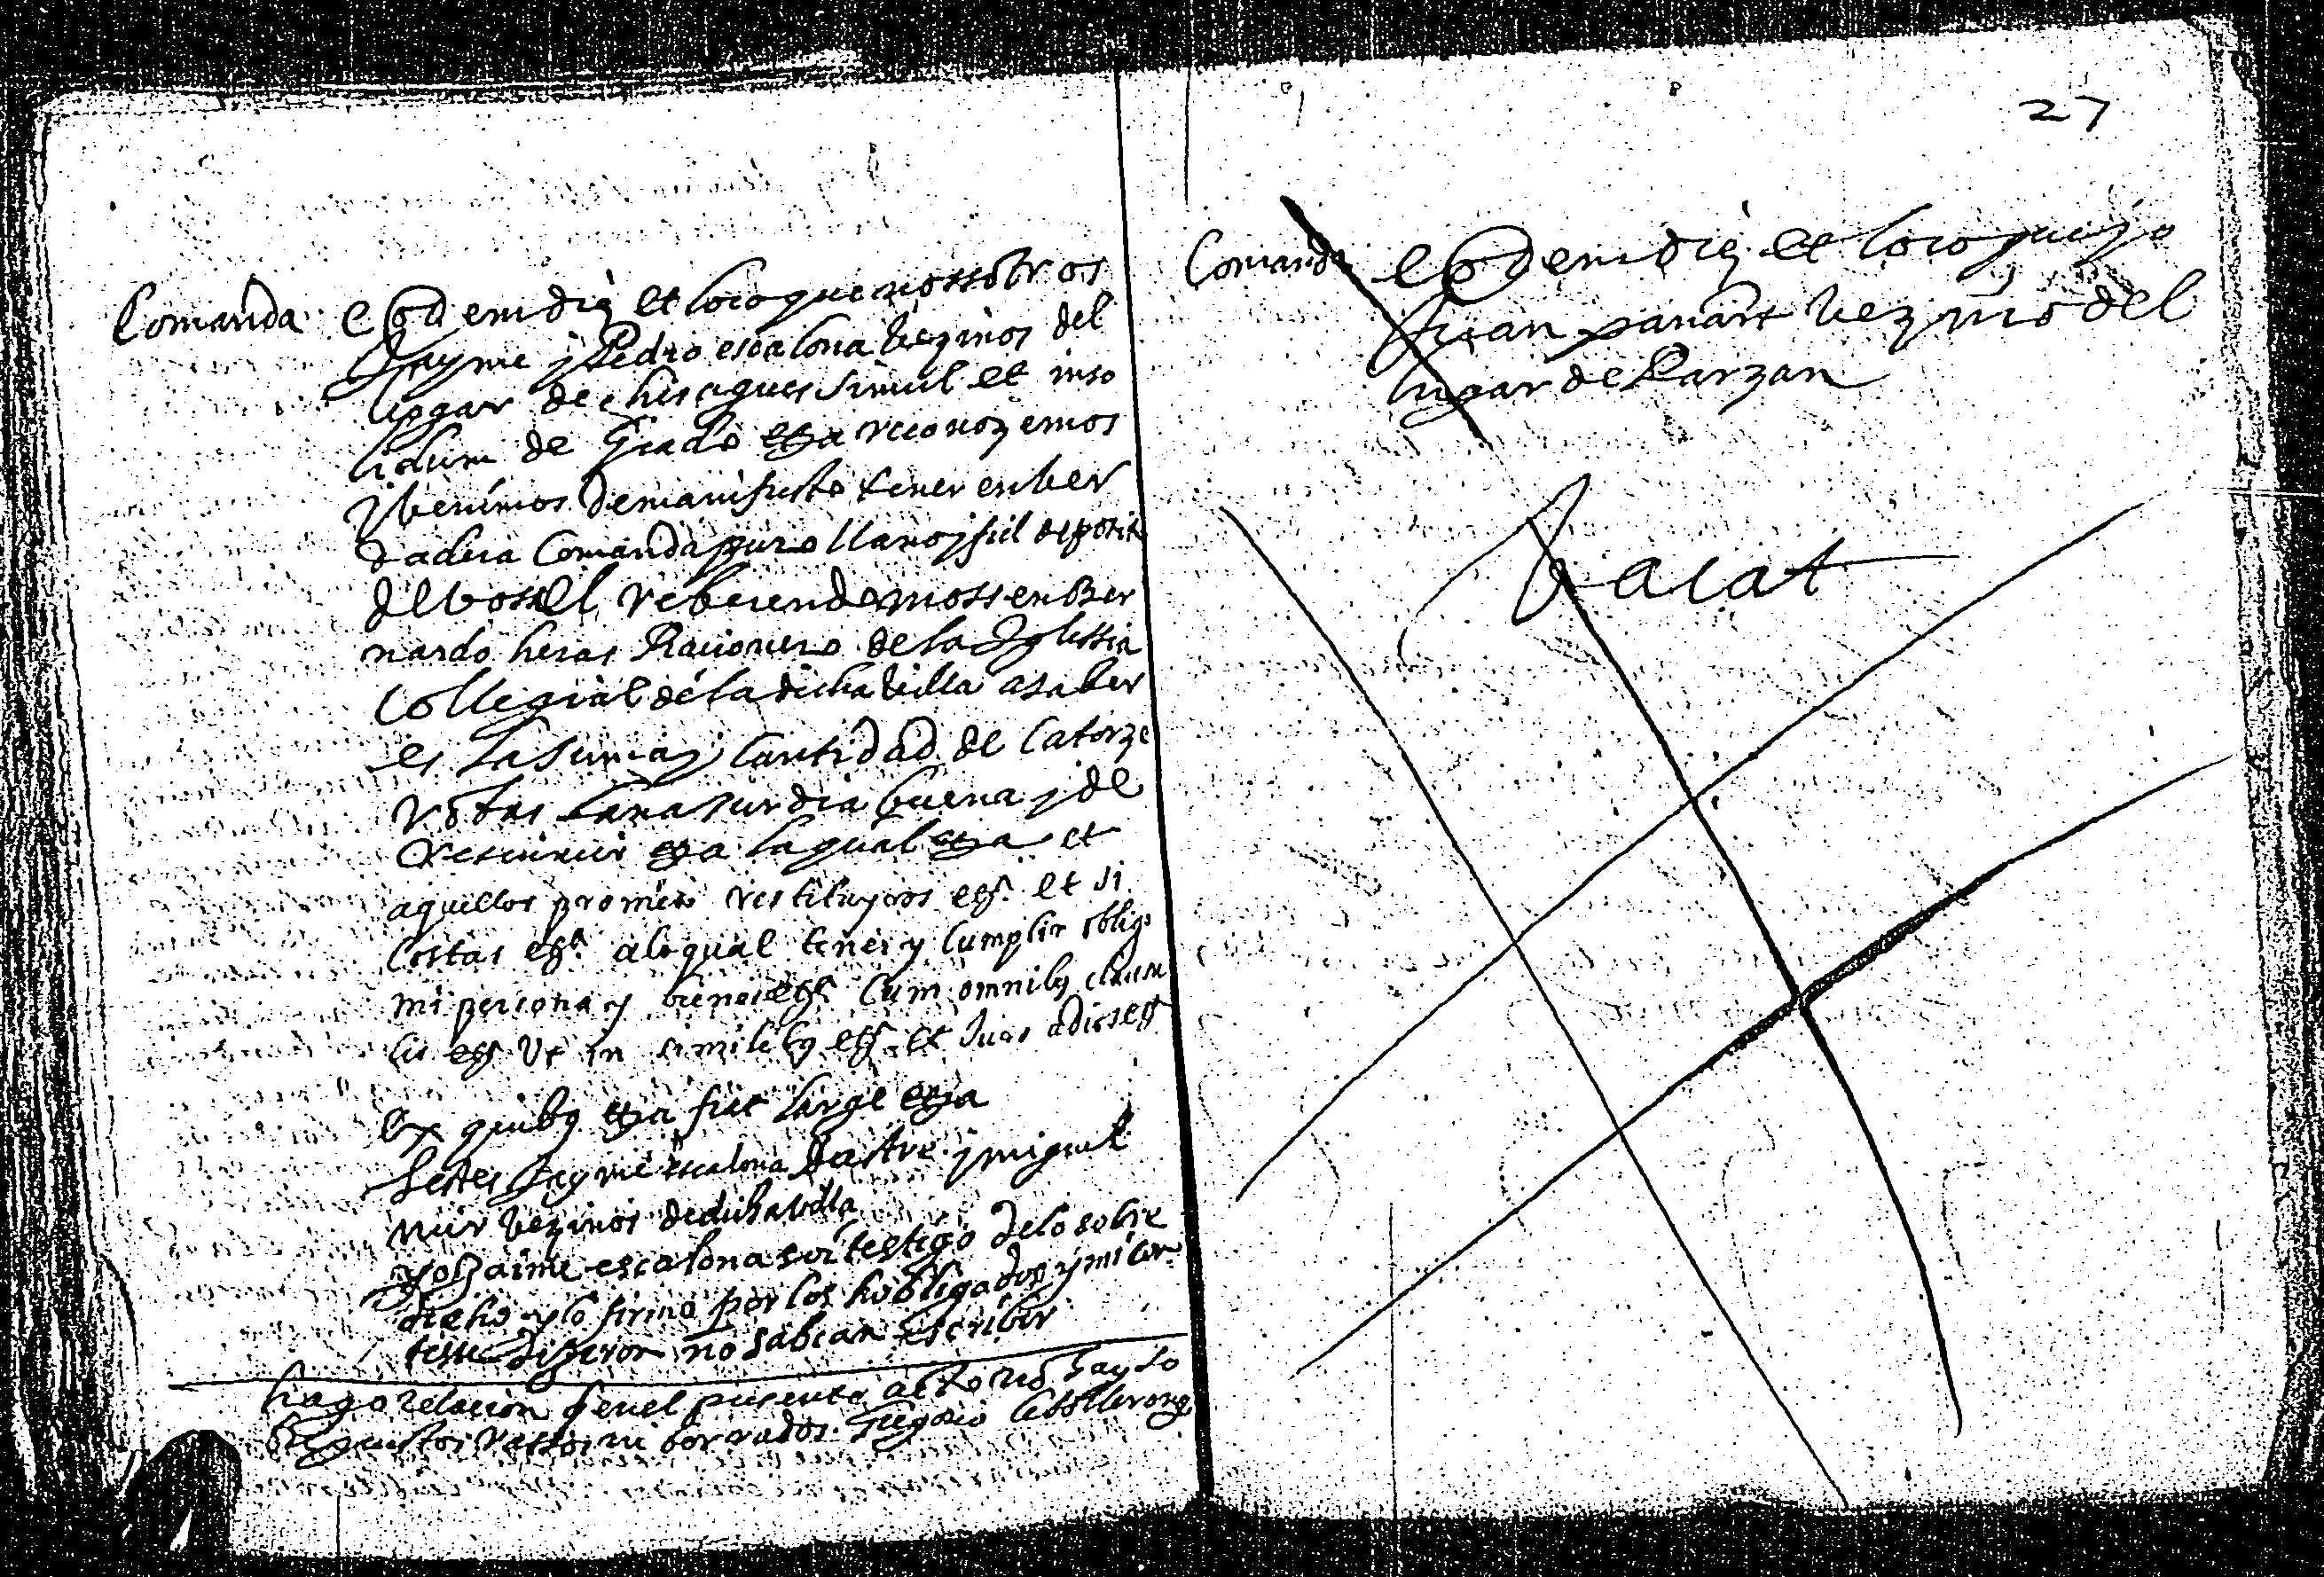 Comanda eodem die et loco que nossotros
Jayme y Pedro escalona bezinos del
lugar de chisagues simul et inso
lidum de Grado etta reconozemos
y benimos de manifiesto tener en ber
dadera Comanda puro llano y fiel deposito
de bos el reberendo mossen Ber
nardo heras Racionero de la Iglessia
Collegial de la dicha billa a saber
es la suma y cantidad de Catorze
robas lana surdia buena y de
etta la qual etta et
aquellos prometo restituyros ett. et si
costas ett. a lo qual tener y cumplir obligo
mi persona y bienes ett. Cum omnibus clausu
lis ett. Ut in similibus ett. et
Ex quibus etta fiat large etta
Testes Jayme escalona sastre y miguel
mur bezinos de dicha billa
yo Jaime escalona soi testigo de lo sobre
dicho y lo firmo por los hobligados y mi con
teste dixeron no sabian escribir
hago relacion q en el presente acto no hay so
brepuestos rassos ni borrados. Gregorio
27
Comanda eodem die et loco que yo
Juan panart bezino del
lugar de Parzan
Vacat